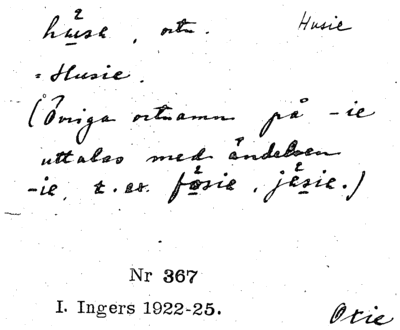 hùse, ortn. Husie
= Husie.
(Övriga ortnamn på -ie
uttalas med ändelsen
-ie, t. ex. fosie, jesie.)
Nr 367
I. Ingers 1922-25. Oxie